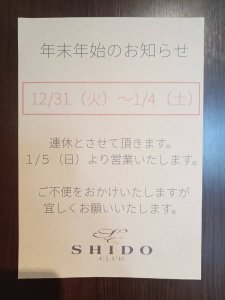 年末年始のお知らせ
12/31（火）～1/4（土）
連休とさせて頂きます。
1/5（日）より営業いたします。
ご不便をおかけいたしますが
宜しくお願いいたします。
SHIDO
CLUB